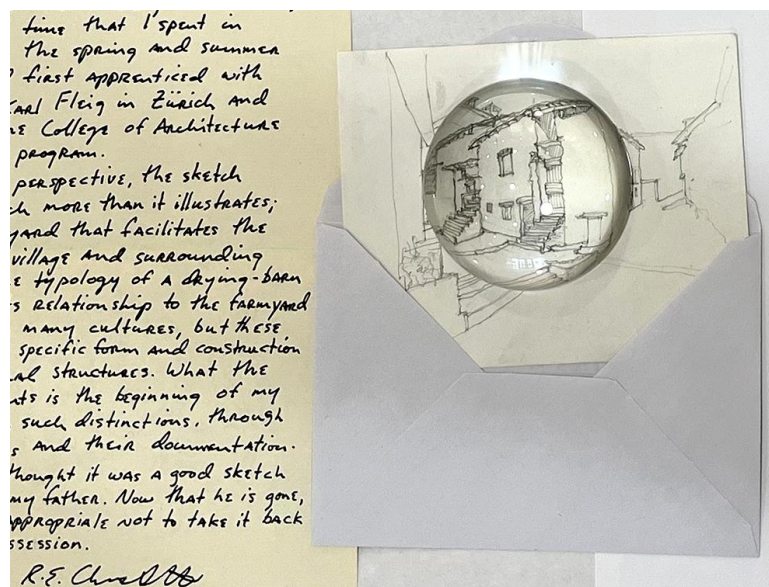 time that I spent in
the spring and summer
first apprenticed with
Carl Fleig in Zürich and
College of Architecture
program.
perspective, the sketch
more than it illustrates;
that facilitates the
village and surrounding
typology of a drying-barn
relationship to the farmyard
many cultures, but these
specific form and construction
structures. What the
is the beginning of my
such distinctions, through
and their documentation.
thought it was a good sketch
my father. Now that he is gone,
appropriate not to take it back
ssession.
R.E.